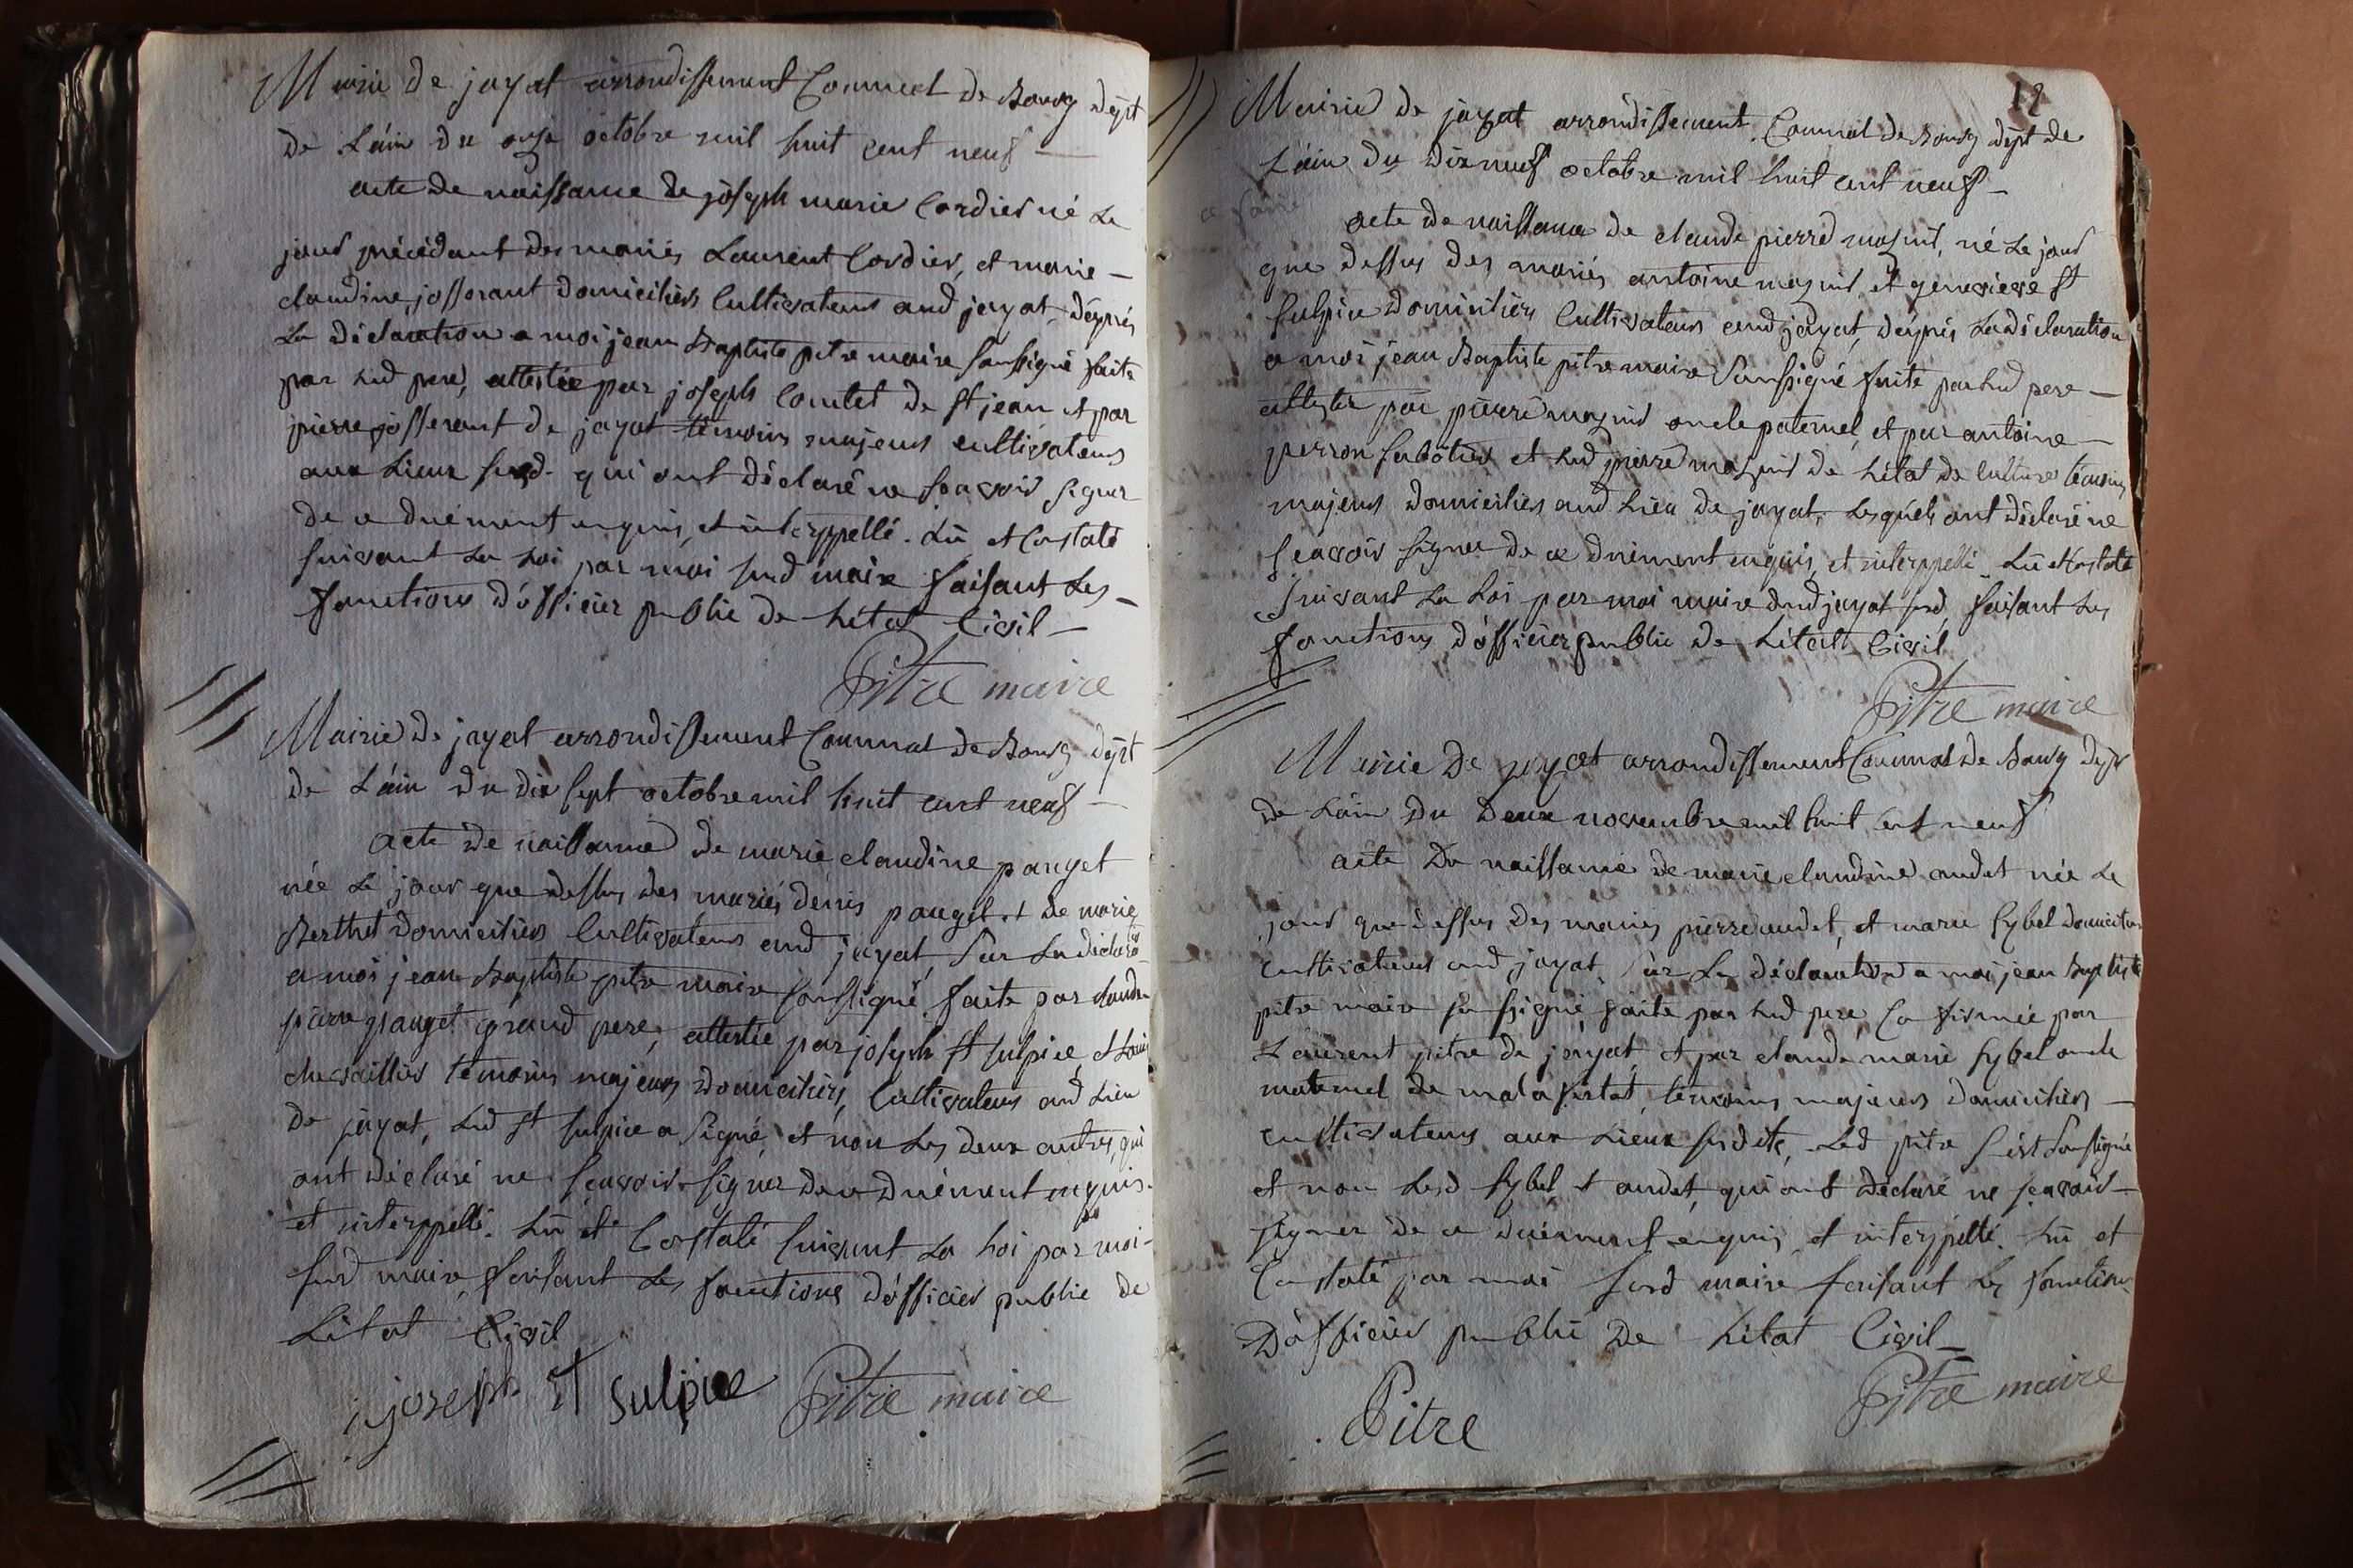 Mairie de jayat arrondissement Communal de Bourg dépt
de L'ain du onze octobre mil huit cent neuf —
acte de naissance de joseph marie Cordier né Le
jour précédant des mariés Laurent Cordier, et marie —
claudine josserant domiciliés Cultivateurs aud jayat, d'eprès
La déclaration a moi jean Baptiste pitre maire soussigné faite
par Led pere, attestée par joseph Comtet de st jean et par
pierre josserant de jayat témoins majeurs cultivateurs
aux Lieux susd. qui ont déclaré ne sçavoir signer
de ce duément enquis, et interppellé. Lû et Constaté
suivant La Loi par moi susd maire faisant Les —
fonctions d'officier public de L'état Civil —
Pitre maire
Mairie de jayat arrondissement Communal de Bourg dépt
de L'ain du dix sept octobre mil huit cent neuf —
acte de naissance de marie claudine pauget
née Le jour que dessus des mariés dénis pauget et de marie
Berthet domiciliés Cultivateurs aud jayat, sur La déclaraon
a moi jean Baptiste pitre maire soussigné faite par claude
pierre pauget grand pere, attestée par joseph st sulpice, et Louis
chevaillier témoins majeurs domiciliés, Cultivateurs aud Lieu
de jayat, Led st sulpice a signé, et non Les deux autres, qui
ont déclaré ne sçavoir signer de ce duément enquis
et interppellé. Lû et Constaté suivant La Loi par moi —
susd maire, faisant Les fonctions d'officier public de
L'état Civil
joseph st sulpice Pitre maire
12
Mairie de jayat arrondissement Communal de Bourg dépt de
L'ain du dix neuf octobre mil huit cent neuf —
acte de naissance de claude pierre mazuit, né Le jour
que dessus des mariés antoine mazuit, et genevieve st
sulpice domiciliés Cultivateurs aud jayat, d'éprès La déclaration
a moi jean Baptiste pitre maire soussigné faite par Led pere —
attestée par pierre mazuit oncle paternel, et par antoine —
perron sabotier et Led pierre mazuit de L'état de culture témoins
majeurs domiciliés aud Lieu de jayat, Lesquels ont déclaré ne
sçavoir signer de ce duément enquis, et interppellé. Lû et Constaté
suivant La Loi par moi maire dud jayat susd, faisant Les
fonctions d'officier public de L'état Civil
Pitre maire
Mairie de jayat arrondissement Communal de Bourg dépt
de L'ain du deux novembre mil huit cent neuf
acte de naissance de marie claudine audet née Le
jour que dessus des mariés pierre audet, et marie sybel domiciliés
Cultivateurs aud jayat, sur La déclaration a moi jean Baptiste
pitre maire soussigné, faite par Led pere, Confirmée par
Laurent pitre de jayat, et par claude marie sybel oncle
maternel de malafretat, témoins majeurs domiciliés —
cultivateurs aux Lieux susdits, Led pitre s'est soussigné
et non Lesd sybel et audet, qui ont déclaré ne sçavoir —
signer de ce duément enquis, et interpéllé. Lû et
Constaté par moi susd maire faisant Les fonctions
D'officier public de L'état Civil —
Pitre maire
Pitre